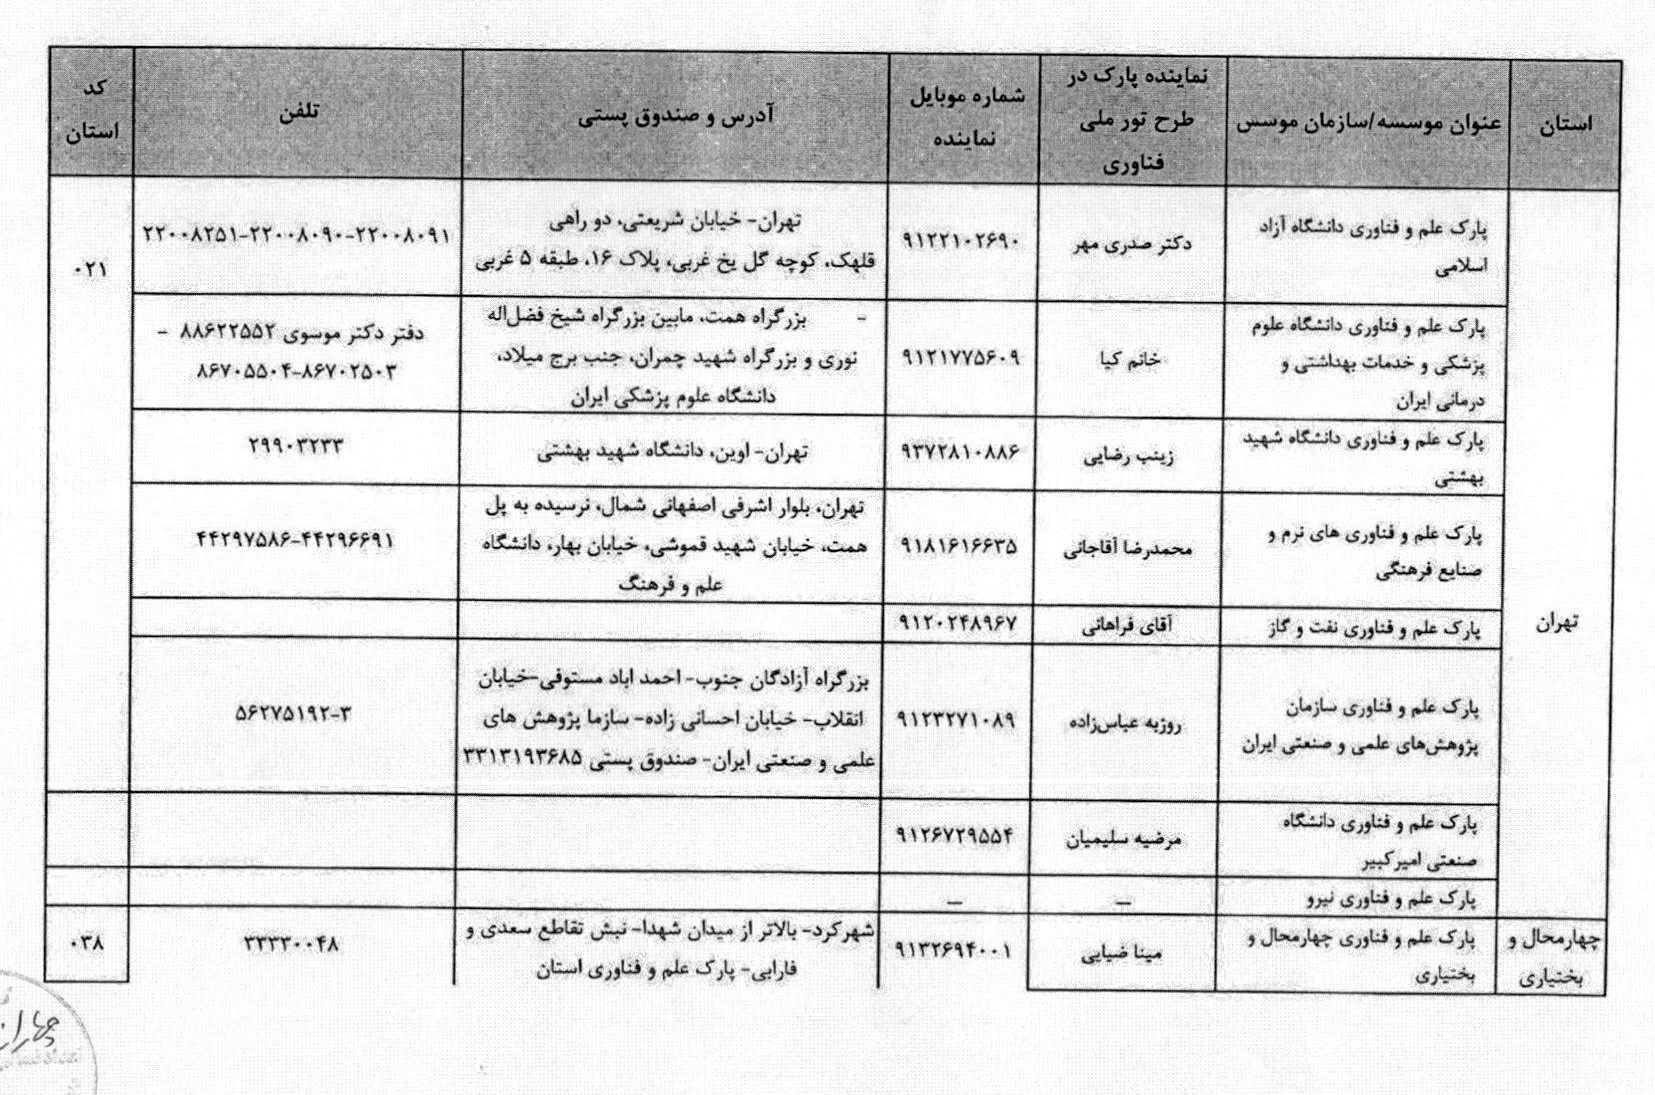 استان
عنوان موسسه/سازمان موسس
نماینده پارک در
طرح تور ملی
فناوری
شماره موبایل
نماینده
آدرس و صندوق پستی
تلفن
کد
استان
تهران
پارک علم و فناوری دانشگاه آزاد
اسلامی
دکتر صدری مهر
۹۱۲۲۱۰۲۶۹۰
تهران- خیابان شریعتی، دو راهی
قلهک، کوچه گل یخ غربی، پلاک ۱۶، طبقه ۵ غربی
۲۲۰۰۸۲۵۱-۲۲۰۰۸۰۹۰-۲۲۰۰۸۰۹۱
۰۲۱
پارک علم و فناوری دانشگاه علوم
پزشکی و خدمات بهداشتی و
درمانی ایران
خانم کیا
۹۱۲۱۷۷۵۶۰۹
- بزرگراه همت، مابین بزرگراه شیخ فضل‌اله
نوری و بزرگراه شهید چمران، جنب برج میلاد،
دانشگاه علوم پزشکی ایران
دفتر دکتر موسوی ۸۸۶۲۲۵۵۲ -
۸۶۷۰۵۵۰۴-۸۶۷۰۲۵۰۳
پارک علم و فناوری دانشگاه شهید
بهشتی
زینب رضایی
۹۳۷۲۸۱۰۸۸۶
تهران- اوین، دانشگاه شهید بهشتی
۲۹۹۰۳۲۳۳
پارک علم و فناوری های نرم و
صنایع فرهنگی
محمدرضا آقاجانی
۹۱۸۱۶۱۶۶۳۵
تهران، بلوار اشرفی اصفهانی شمال، نرسیده به پل
همت، خیابان شهید قموشی، خیابان بهار، دانشگاه
علم و فرهنگ
۴۴۲۹۷۵۸۶-۴۴۲۹۶۶۹۱
پارک علم و فناوری نفت و گاز
آقای فراهانی
۹۱۲۰۲۴۸۹۶۷
پارک علم و فناوری سازمان
پژوهش‌های علمی و صنعتی ایران
روزبه عباس‌زاده
۹۱۲۳۲۷۱۰۸۹
بزرگراه آزادگان جنوب- احمد اباد مستوفی-خیابان
انقلاب- خیابان احسانی زاده- سازما پژوهش های
علمی و صنعتی ایران- صندوق پستی ۳۳۱۳۱۹۳۶۸۵
۵۶۲۷۵۱۹۲-۳
پارک علم و فناوری دانشگاه
صنعتی امیرکبیر
مرضیه سلیمیان
۹۱۲۶۷۲۹۵۵۴
پارک علم و فناوری نیرو
–
–
چهارمحال و
بختیاری
پارک علم و فناوری چهارمحال و
بختیاری
مینا ضیایی
۹۱۳۲۶۹۴۰۰۱
شهرکرد- بالاتر از میدان شهدا- نبش تقاطع سعدی و
فارابی- پارک علم و فناوری استان
۳۳۳۳۰۰۴۸
۰۳۸